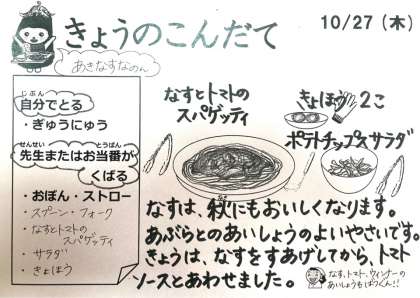 きょうのこんだて
10/27（木）
あきなすなのん
じぶん
自分でとる
・ぎゅうにゅう
せんせい とうばん
先生またはお当番が
くばる
・おぼん・ストロー
・スプーン・フォーク
・なすとトマトの
スパゲッティ
・サラダ
・きょほう
なすとトマトの
スパゲッティ
きょほう 2こ
ポテトチップスサラダ
なすは、秋にもおいしくなります。
あぶらとのあいしょうのよいやさいです。
きょうは、なすをすあげしてから、トマト
ソースとあわせました。
なす、トマト、ウィンナーの
あいしょうもばつぐん!!